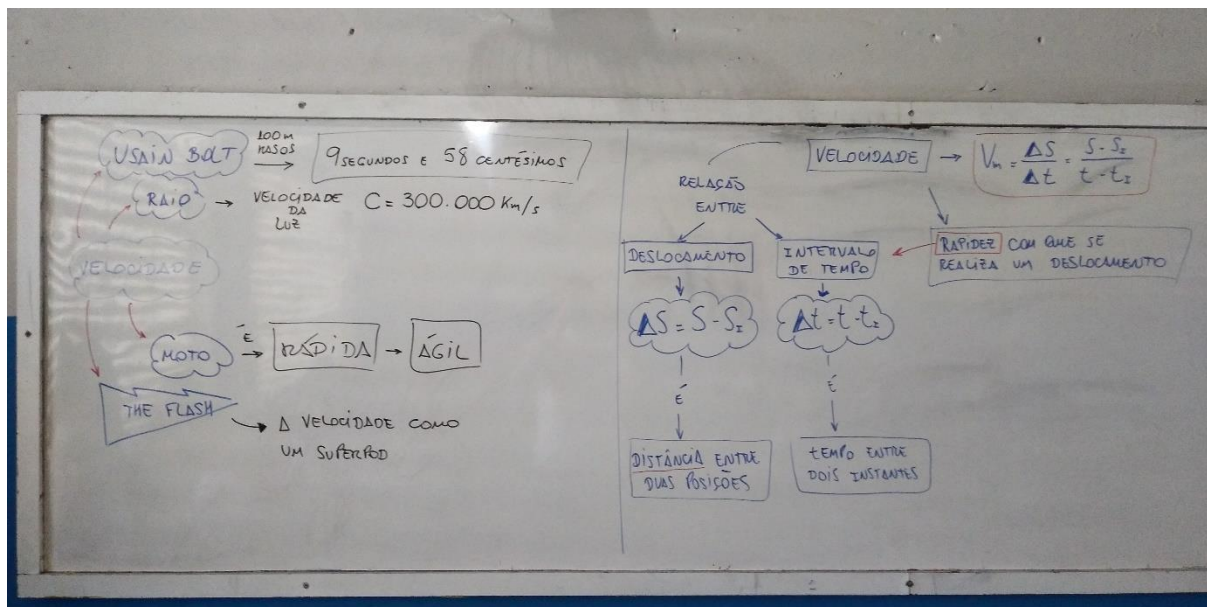 USAIN BOLT
100m
RASOS
9 SEGUNDOS E 58 CENTÉSIMOS
RAIO
VELOCIDADE
DA
LUZ
C = 300.000 Km/s
VELOCIDADE
MOTO
É
RÁPIDA
ÁGIL
THE FLASH
A VELOCIDADE COMO
UM SUPERPOD
VELOCIDADE
Vm = ΔS/Δt = S - SI/t - tI
RELAÇÃO
ENTRE
DESLOCAMENTO
INTERVALO
DE TEMPO
RAPIDEZ COM QUE SE
REALIZA UM DESLOCAMENTO
ΔS = S - SI
Δt = t - tI
É
É
DISTÂNCIA ENTRE
DUAS POSIÇÕES
TEMPO ENTRE
DOIS INSTANTES